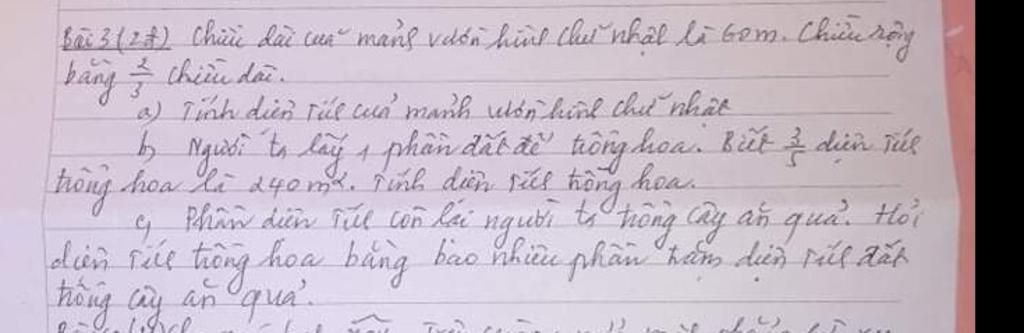 Bài 3 (2đ) Chiều dài của mảnh vườn hình chữ nhật là 60m. Chiều rộng
bằng 2/3 chiều dài.
a) Tính diện tích của mảnh vườn hình chữ nhật
b) Người ta lấy 1 phần đất để trồng hoa. Biết 3/5 diện tích
trồng hoa là 240m2. Tính diện tích trồng hoa.
c) Phần diện tích còn lại người ta trồng cây ăn quả. Hỏi
diện tích trồng hoa bằng bao nhiêu phần trăm diện tích đất
trồng cây ăn quả.